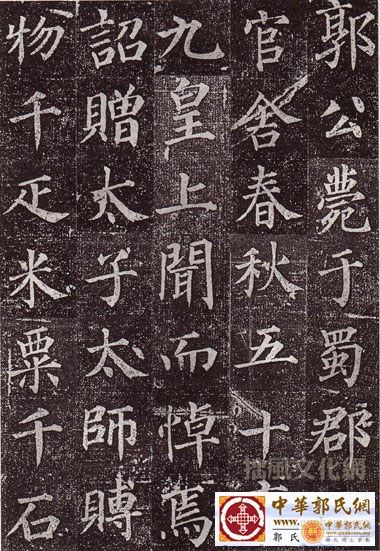 郭公薨于蜀郡
官舍春秋五十
九皇上聞而悼焉
詔贈太子太師賻
物千疋米粟千石
風文化網
中華郭氏網
www.
郭氏
中華郭氏網